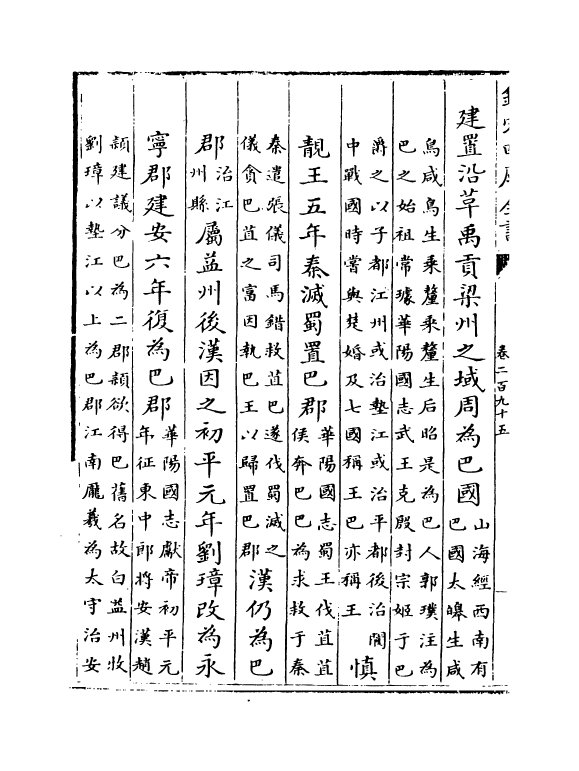 欽定四庫全書
卷二百九十五
建置沿革禹貢梁州之域周為巴國山海經西南有巴國太皞生咸
鳥咸鳥生乗釐乗釐生后昭是為巴人郭璞注為巴之始祖常璩華陽國志武王克殷封宗姬于巴
爵之以子都江州或治墊江或治平都後治閬中戰國時嘗與楚婚及七國稱王巴亦稱王慎
靚王五年秦滅蜀置巴郡華陽國志蜀王伐苴苴侯奔巴巴為求救于秦
秦遣張儀司馬錯救苴巴遂伐蜀滅之儀貪巴苴之富因執巴王以歸置巴郡漢仍為巴
郡治江州縣屬益州後漢因之初平元年劉璋改為永
寧郡建安六年復為巴郡華陽國志獻帝初平元年征東中郎將安漢趙
頴建議分巴為二郡頴欲得巴舊名故白益州牧劉璋以墊江以上為巴郡江南龎羲為太守治安